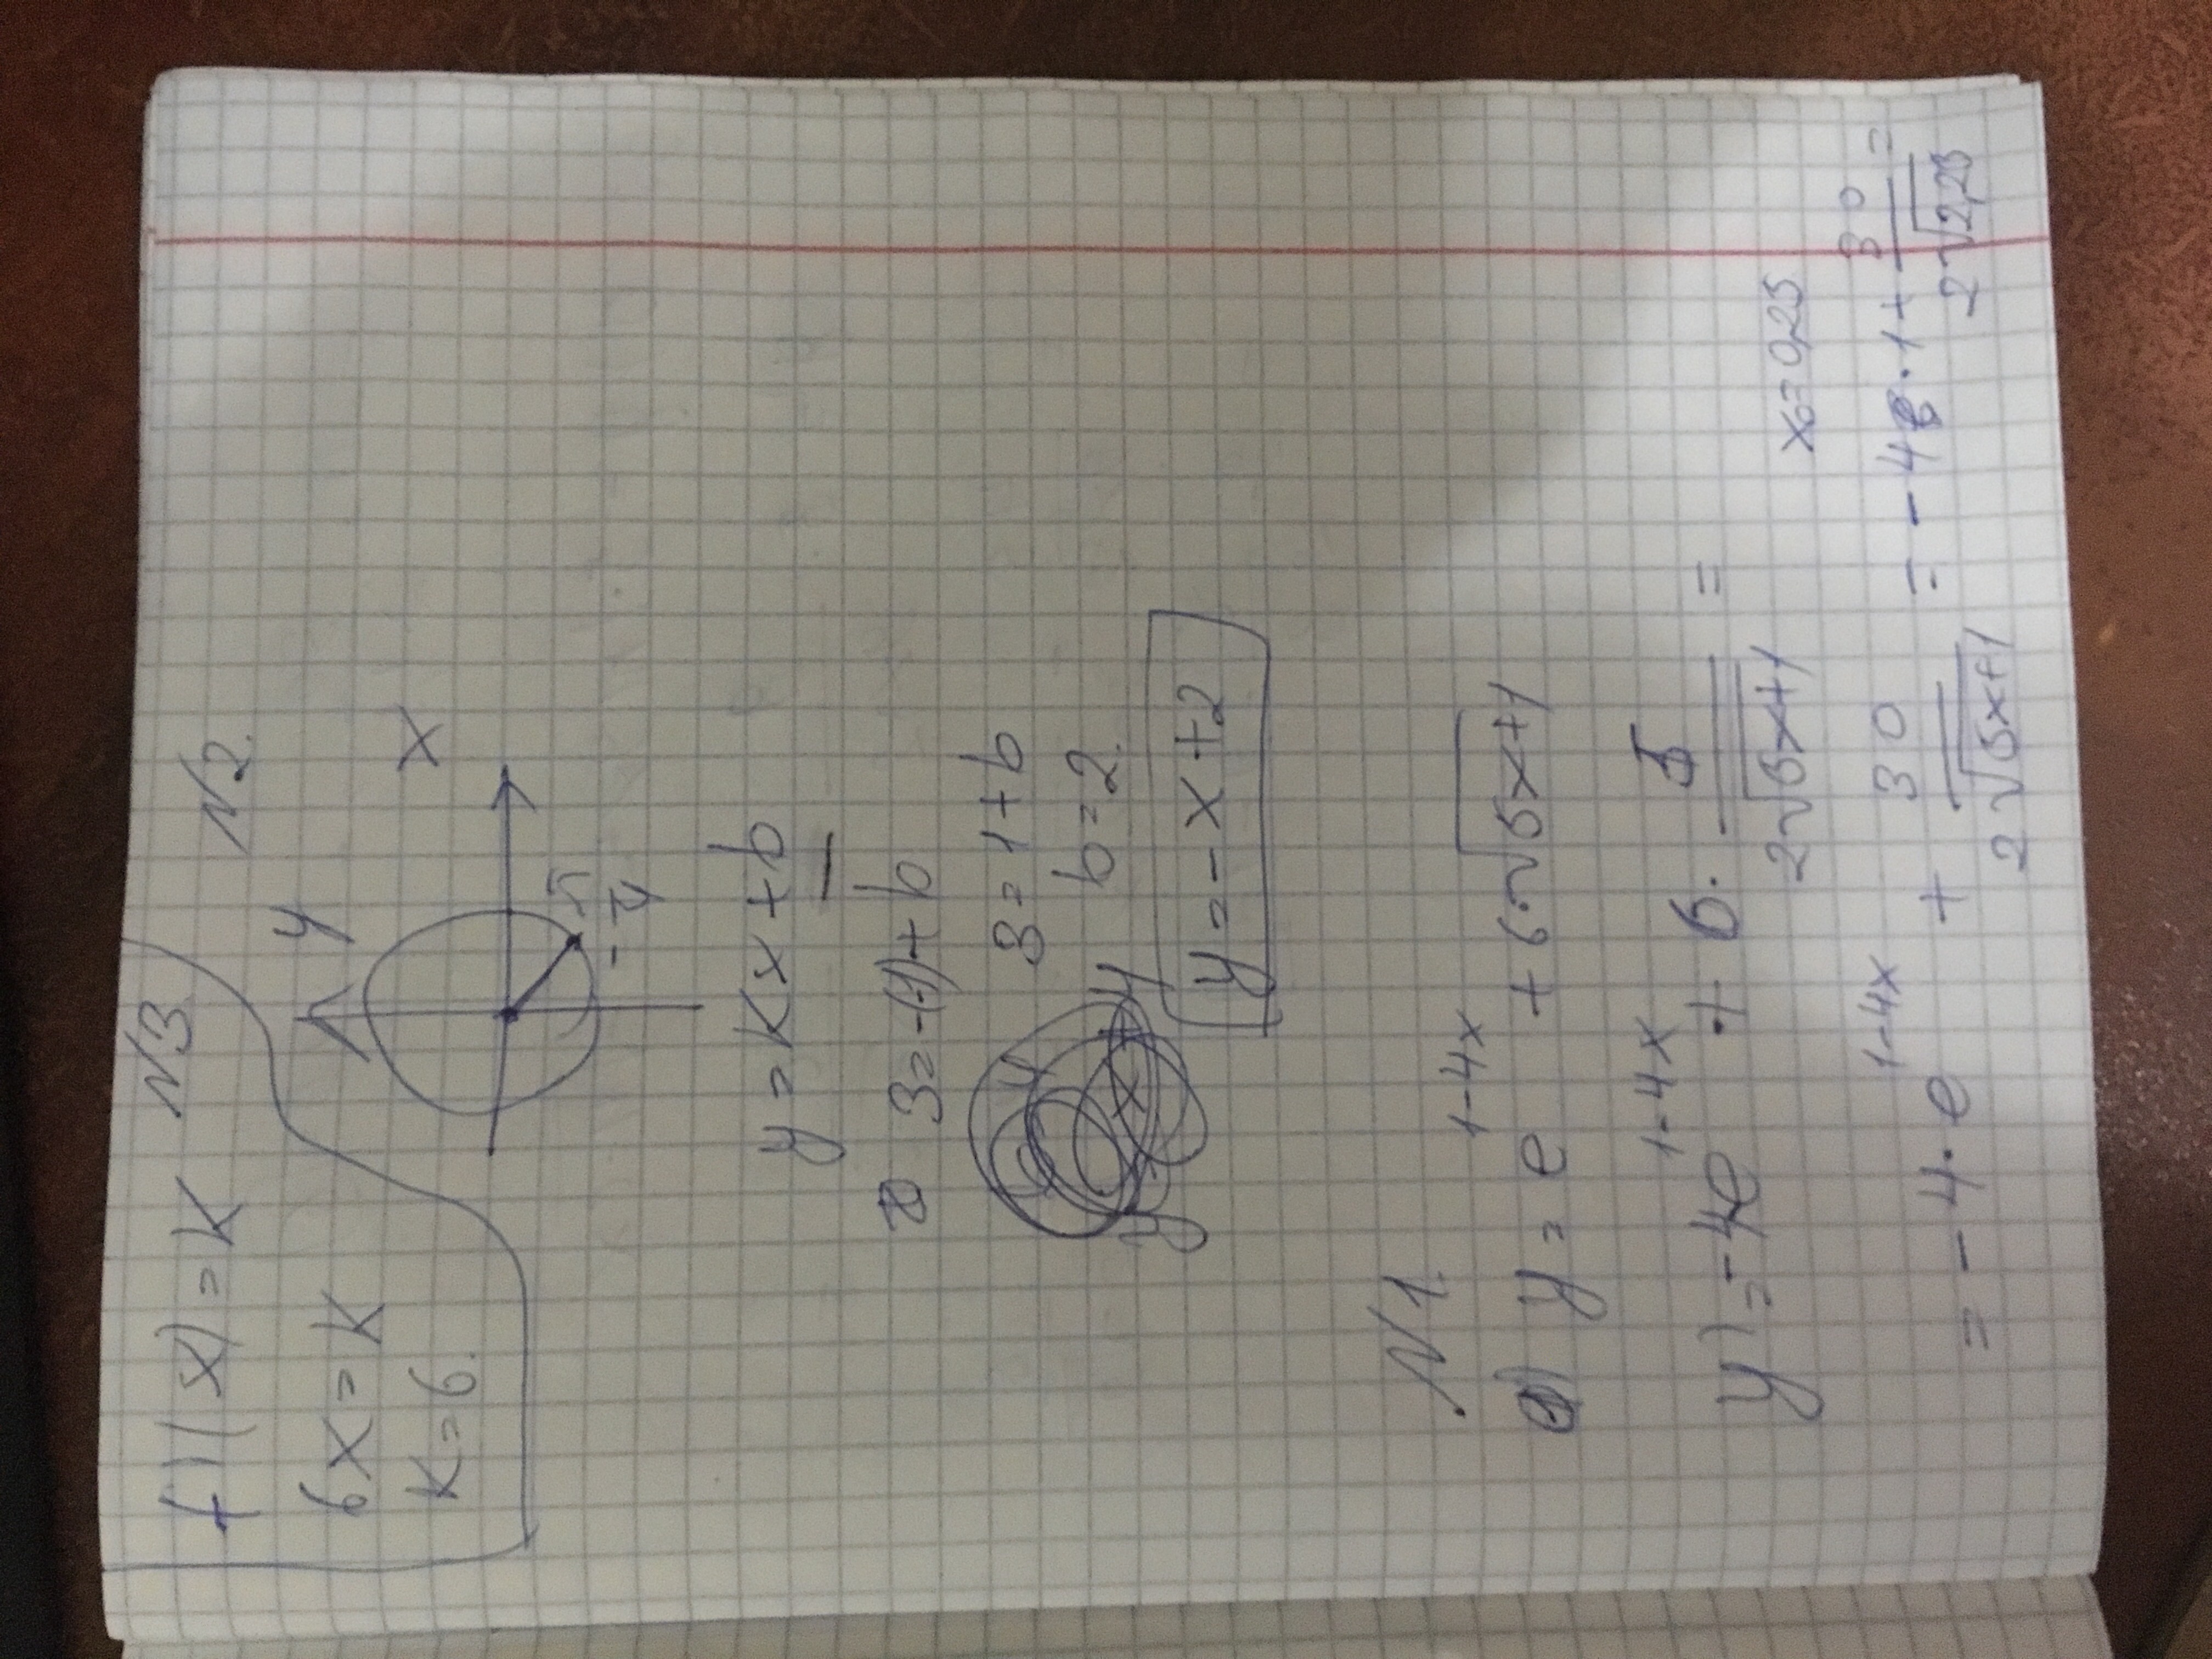 N3
f'(x) = K
6x = K
K = 6.
N2.
y
x
-π/4
y = Kx + b
3 = -(-1) + b
3 = 1 + b
b = 2.
y = -x + 2
N1.
y = e^(1-4x) + 6·√(5x+1)
y' = -4e^(1-4x) + 6· 5/(2√(5x+1)) =
x₀ = 0,25
= -4·e^(1-4x) + 30/(2√(5x+1)) = -4·1 + 30/(2√2,25) =